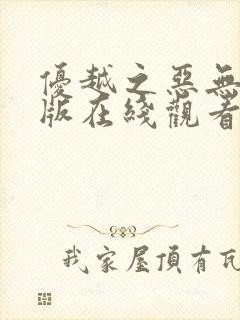 優越之惡無
版在綫觀看
我家屋頂有瓦